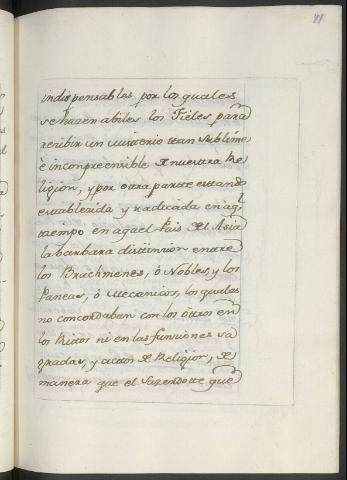 41
indispensables por los quales
se hazen abiles los Fieles para
recibir un misterio ttan sublime
è incomprensible de nuestra Re
ligion, y por otra partte estando
establecida y radicada en aql
ttiempo en aquel Pais del Asia
la barbara distincion enttre
los Brachmenes, ò Nobles, y los
Pareas, ò Mecanicos, los quales
no concordaban con los òtros en
los Rittos ni en las funciones sa
gradas, y actos de Religion, de
manera que el sazerdotte que